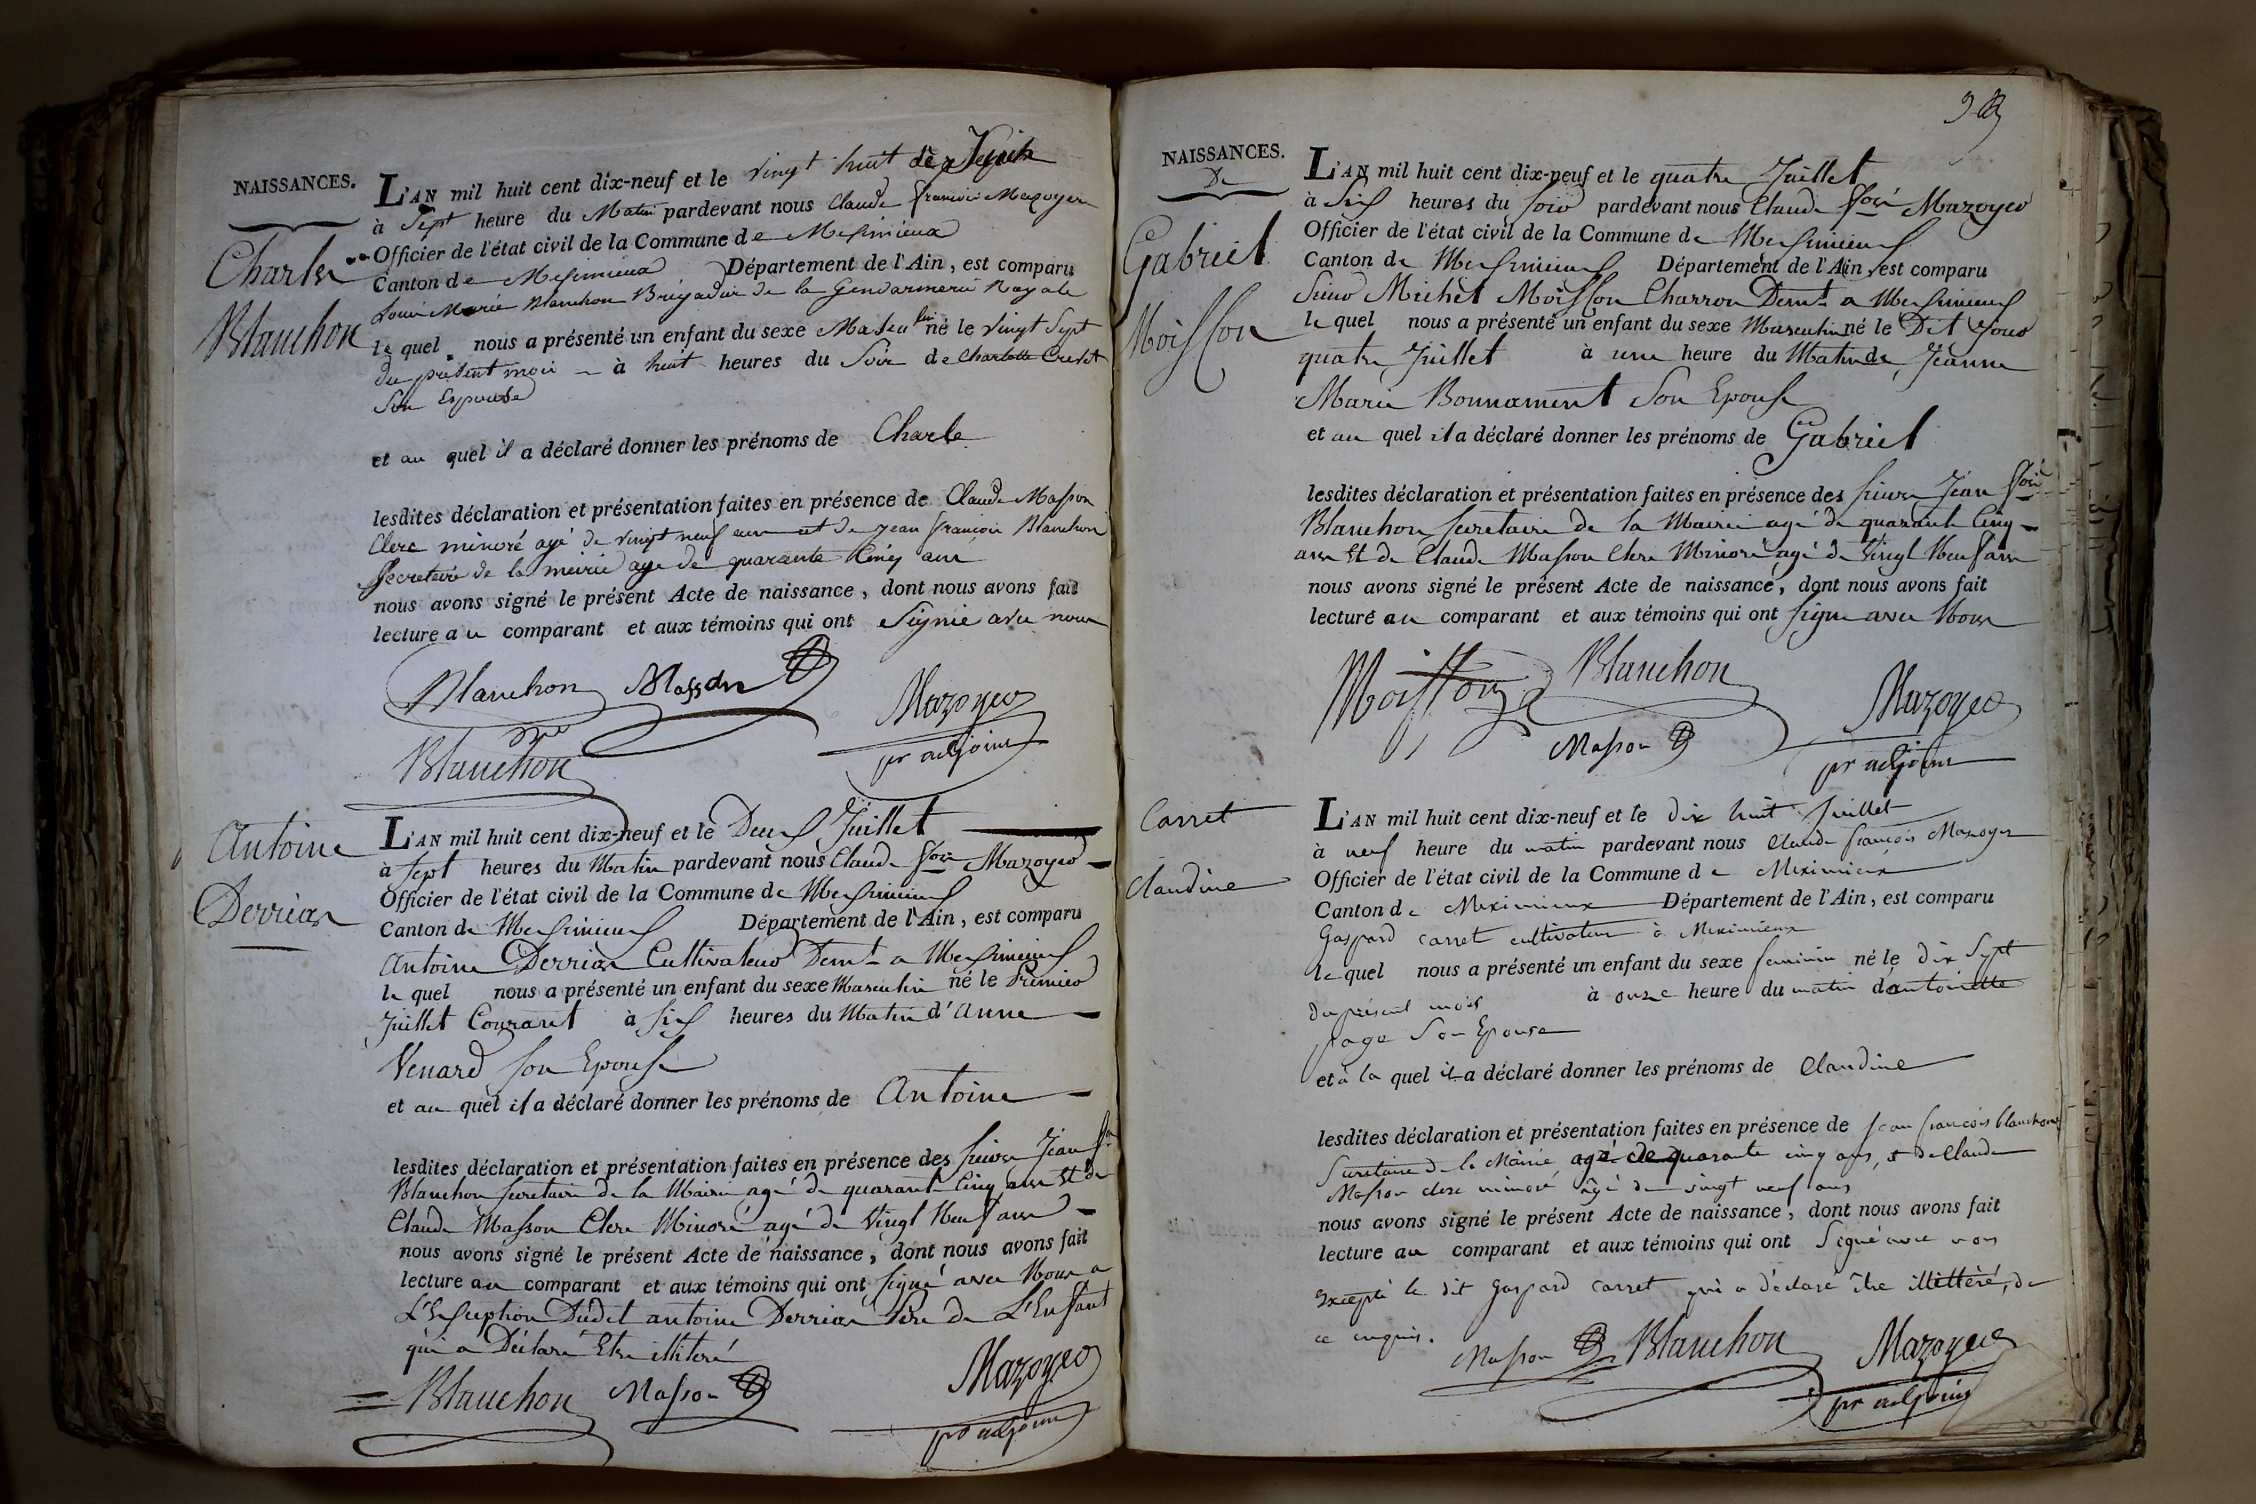 NAISSANCES.
Charles
Blanchon
L'AN mil huit cent dix-neuf et le vingt huit de Juin
à Sept heure du Matin pardevant nous Claude françois Mazoyer
Officier de l'état civil de la Commune de Meximieux
Canton de Meximieux Département de l'Ain, est comparu
Louis Marie Blanchon Brigadier de la Gendarmerie Royale
le quel nous a présenté un enfant du sexe Masculin né le vingt Sept
du présent mois à huit heures du Soir de Charlotte
Son Espouse
et au quel il a déclaré donner les prénoms de Charle
lesdites déclaration et présentation faites en présence de Claude Masson
Clerc minoré agé de vingt neuf ans et de jean françois Blanchon
Secretaire de la mairie age de quarante Cinq ans
nous avons signé le présent Acte de naissance, dont nous avons fait
lecture au comparant et aux témoins qui ont Signié avec nous
Blanchon Masson
Mazoyer
Blanchon
pr adjoint
Antoine
Derrias
L'AN mil huit cent dix-neuf et le Deux Juillet
à Sept heures du Matin pardevant nous Claude fçois Mazoyer
Officier de l'état civil de la Commune de Meximieux
Canton de Meximieux Département de l'Ain, est comparu
Antoine Derrias Cultivateur Demt a Meximieux
le quel nous a présenté un enfant du sexe Masculin né le Premier
Juillet Courant à Six heures du Matin d'Anne
Venard Son Epouse
et au quel il a déclaré donner les prénoms de Antoine
lesdites déclaration et présentation faites en présence des Sieurs Jean fçois
Blanchon Secretaire de la Mairie agé de quarante Cinq ans Et de
Claude Masson Clerc Minoré agé de Vingt Neuf ans
nous avons signé le présent Acte de naissance, dont nous avons fait
lecture au comparant et aux témoins qui ont Signé avec Nous a
L'Exception Dudit antoine Derrias Père de L'Enfant
qui a Déclaré Etre illiteré
Blanchon Masson
Mazoyer
pr adjoint
NAISSANCES.
De
Gabriel
Moisson
L'AN mil huit cent dix-neuf et le quatre Juillet
à Six heures du Soir pardevant nous Claude fçois Mazoyer
Officier de l'état civil de la Commune de Meximieux
Canton de Meximieux Département de l'Ain, est comparu
Sieur Michel Moisson Charron Demt a Meximieux
le quel nous a présenté un enfant du sexe Masculin né le Dit Jour
quatre Juillet à une heure du Matin de Jeanne
Marie Bonnament Son Epouse
et au quel il a déclaré donner les prénoms de Gabriel
lesdites déclaration et présentation faites en présence des Sieurs Jean fçois
Blanchon Secretaire de la Mairie agé de quarante Cinq
ans Et de Claude Masson Clerc Minoré agé de Vingt Neuf ans
nous avons signé le présent Acte de naissance, dont nous avons fait
lecture au comparant et aux témoins qui ont Signé avec Nous
Moisson Blanchon
Mazoyer
Masson
pr adjoint
Carret
Claudine
L'AN mil huit cent dix-neuf et le dix huit juillet
à neuf heure du matin pardevant nous Claude françois Mazoyer
Officier de l'état civil de la Commune de Meximieux
Canton de Meximieux Département de l'Ain, est comparu
Gaspard carret cultivateur à Meximieux
le quel nous a présenté un enfant du sexe feminin né le dix Sept
du présent mois à onze heure du matin d'antoinette
page Son Epouse
et à la quel il a déclaré donner les prénoms de Claudine
lesdites déclaration et présentation faites en présence de Jean françois blanchon
Secretaire de la Mairie agé de quarante cinq ans, & de Claude
Masson clerc minoré âgé de vingt neuf ans
nous avons signé le présent Acte de naissance, dont nous avons fait
lecture au comparant et aux témoins qui ont Signé avec nous
excepté le dit Gaspard carret qui a déclaré être illitéré, de
ce enquis.
Masson Blanchon Mazoyer
pr adjoint